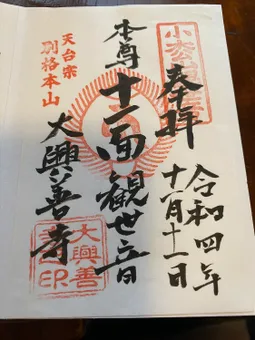 奉拝
令和四年
十一月十一日
本尊十一面観世音
天台宗
別格本山
大興善寺
大興善